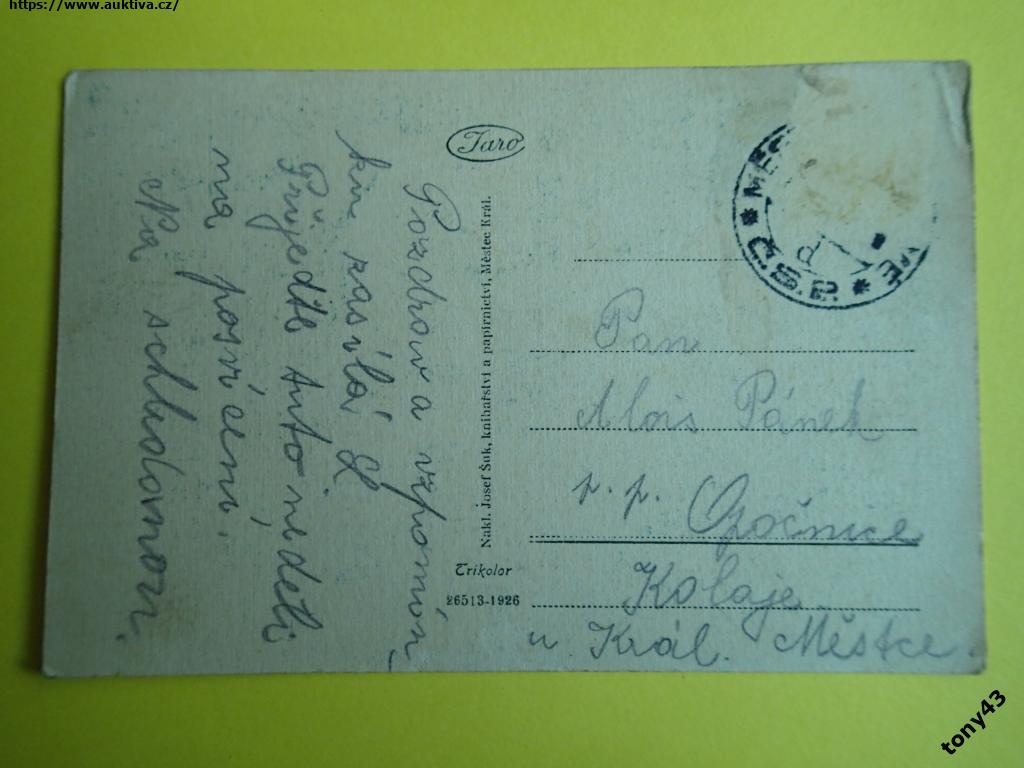 https://www.auktiva.cz/
Pozdrav a vzpomín
ku zasílá L
Přijedte Auto nédeli
na posvícení.
Na schledanou.
Taro
Nakl. Josef Šuk, knihařství a papírnictví, Městec Král.
Trikolor
26513-1926
Pan
Alois Pánek
p. p. Opočnice
Kolaje
u Král. Městce.
Č.S.P. * MĚS
tony43